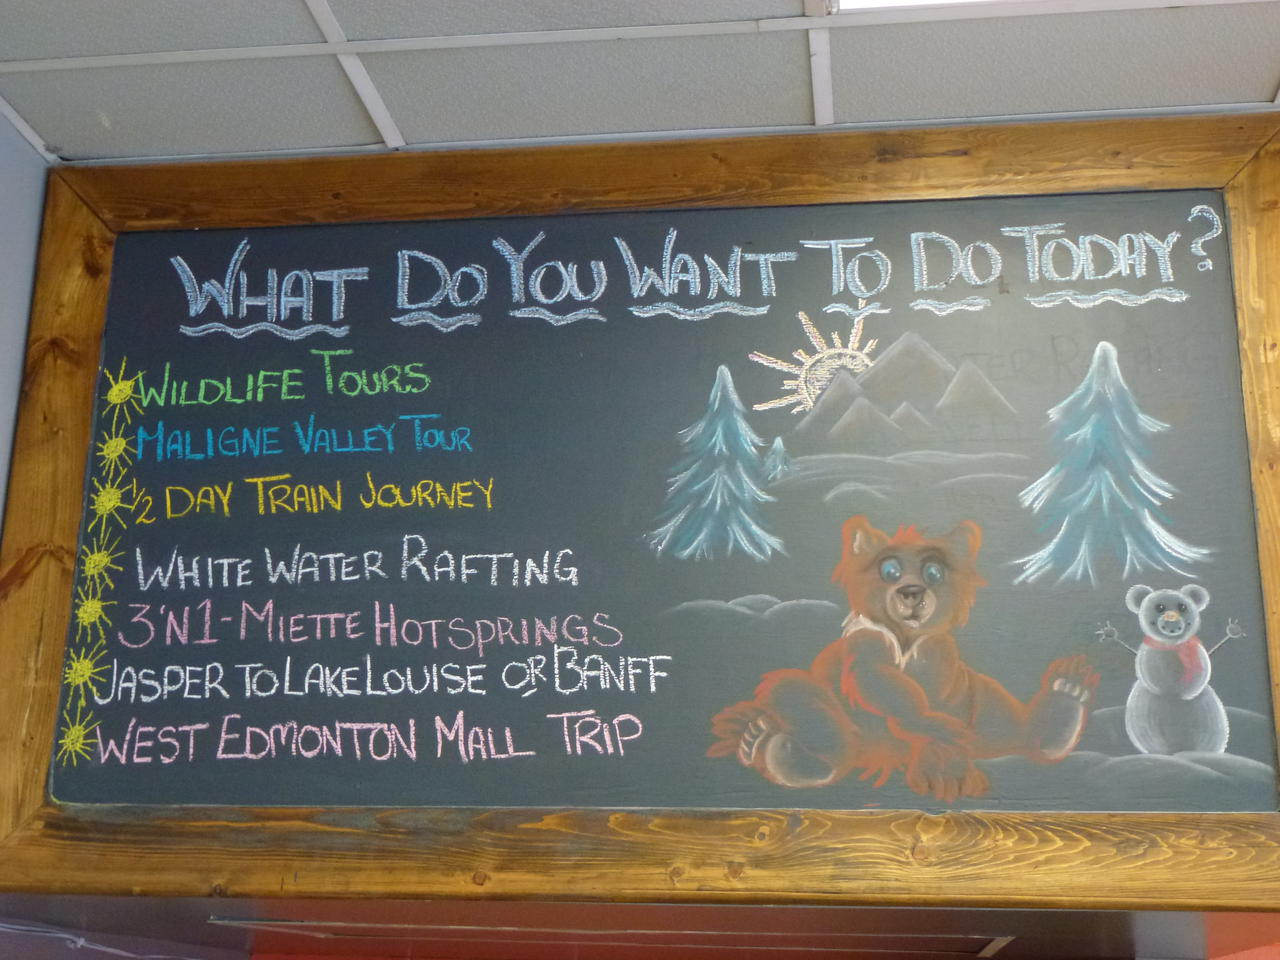 WHAT DO YOU WANT TO DO TODAY?
WILDLIFE TOURS
MALIGNE VALLEY TOUR
1/2 DAY TRAIN JOURNEY
WHITE WATER RAFTING
3'N1-MIETTE HOTSPRINGS
JASPER TO LAKE LOUISE OR BANFF
WEST EDMONTON MALL TRIP